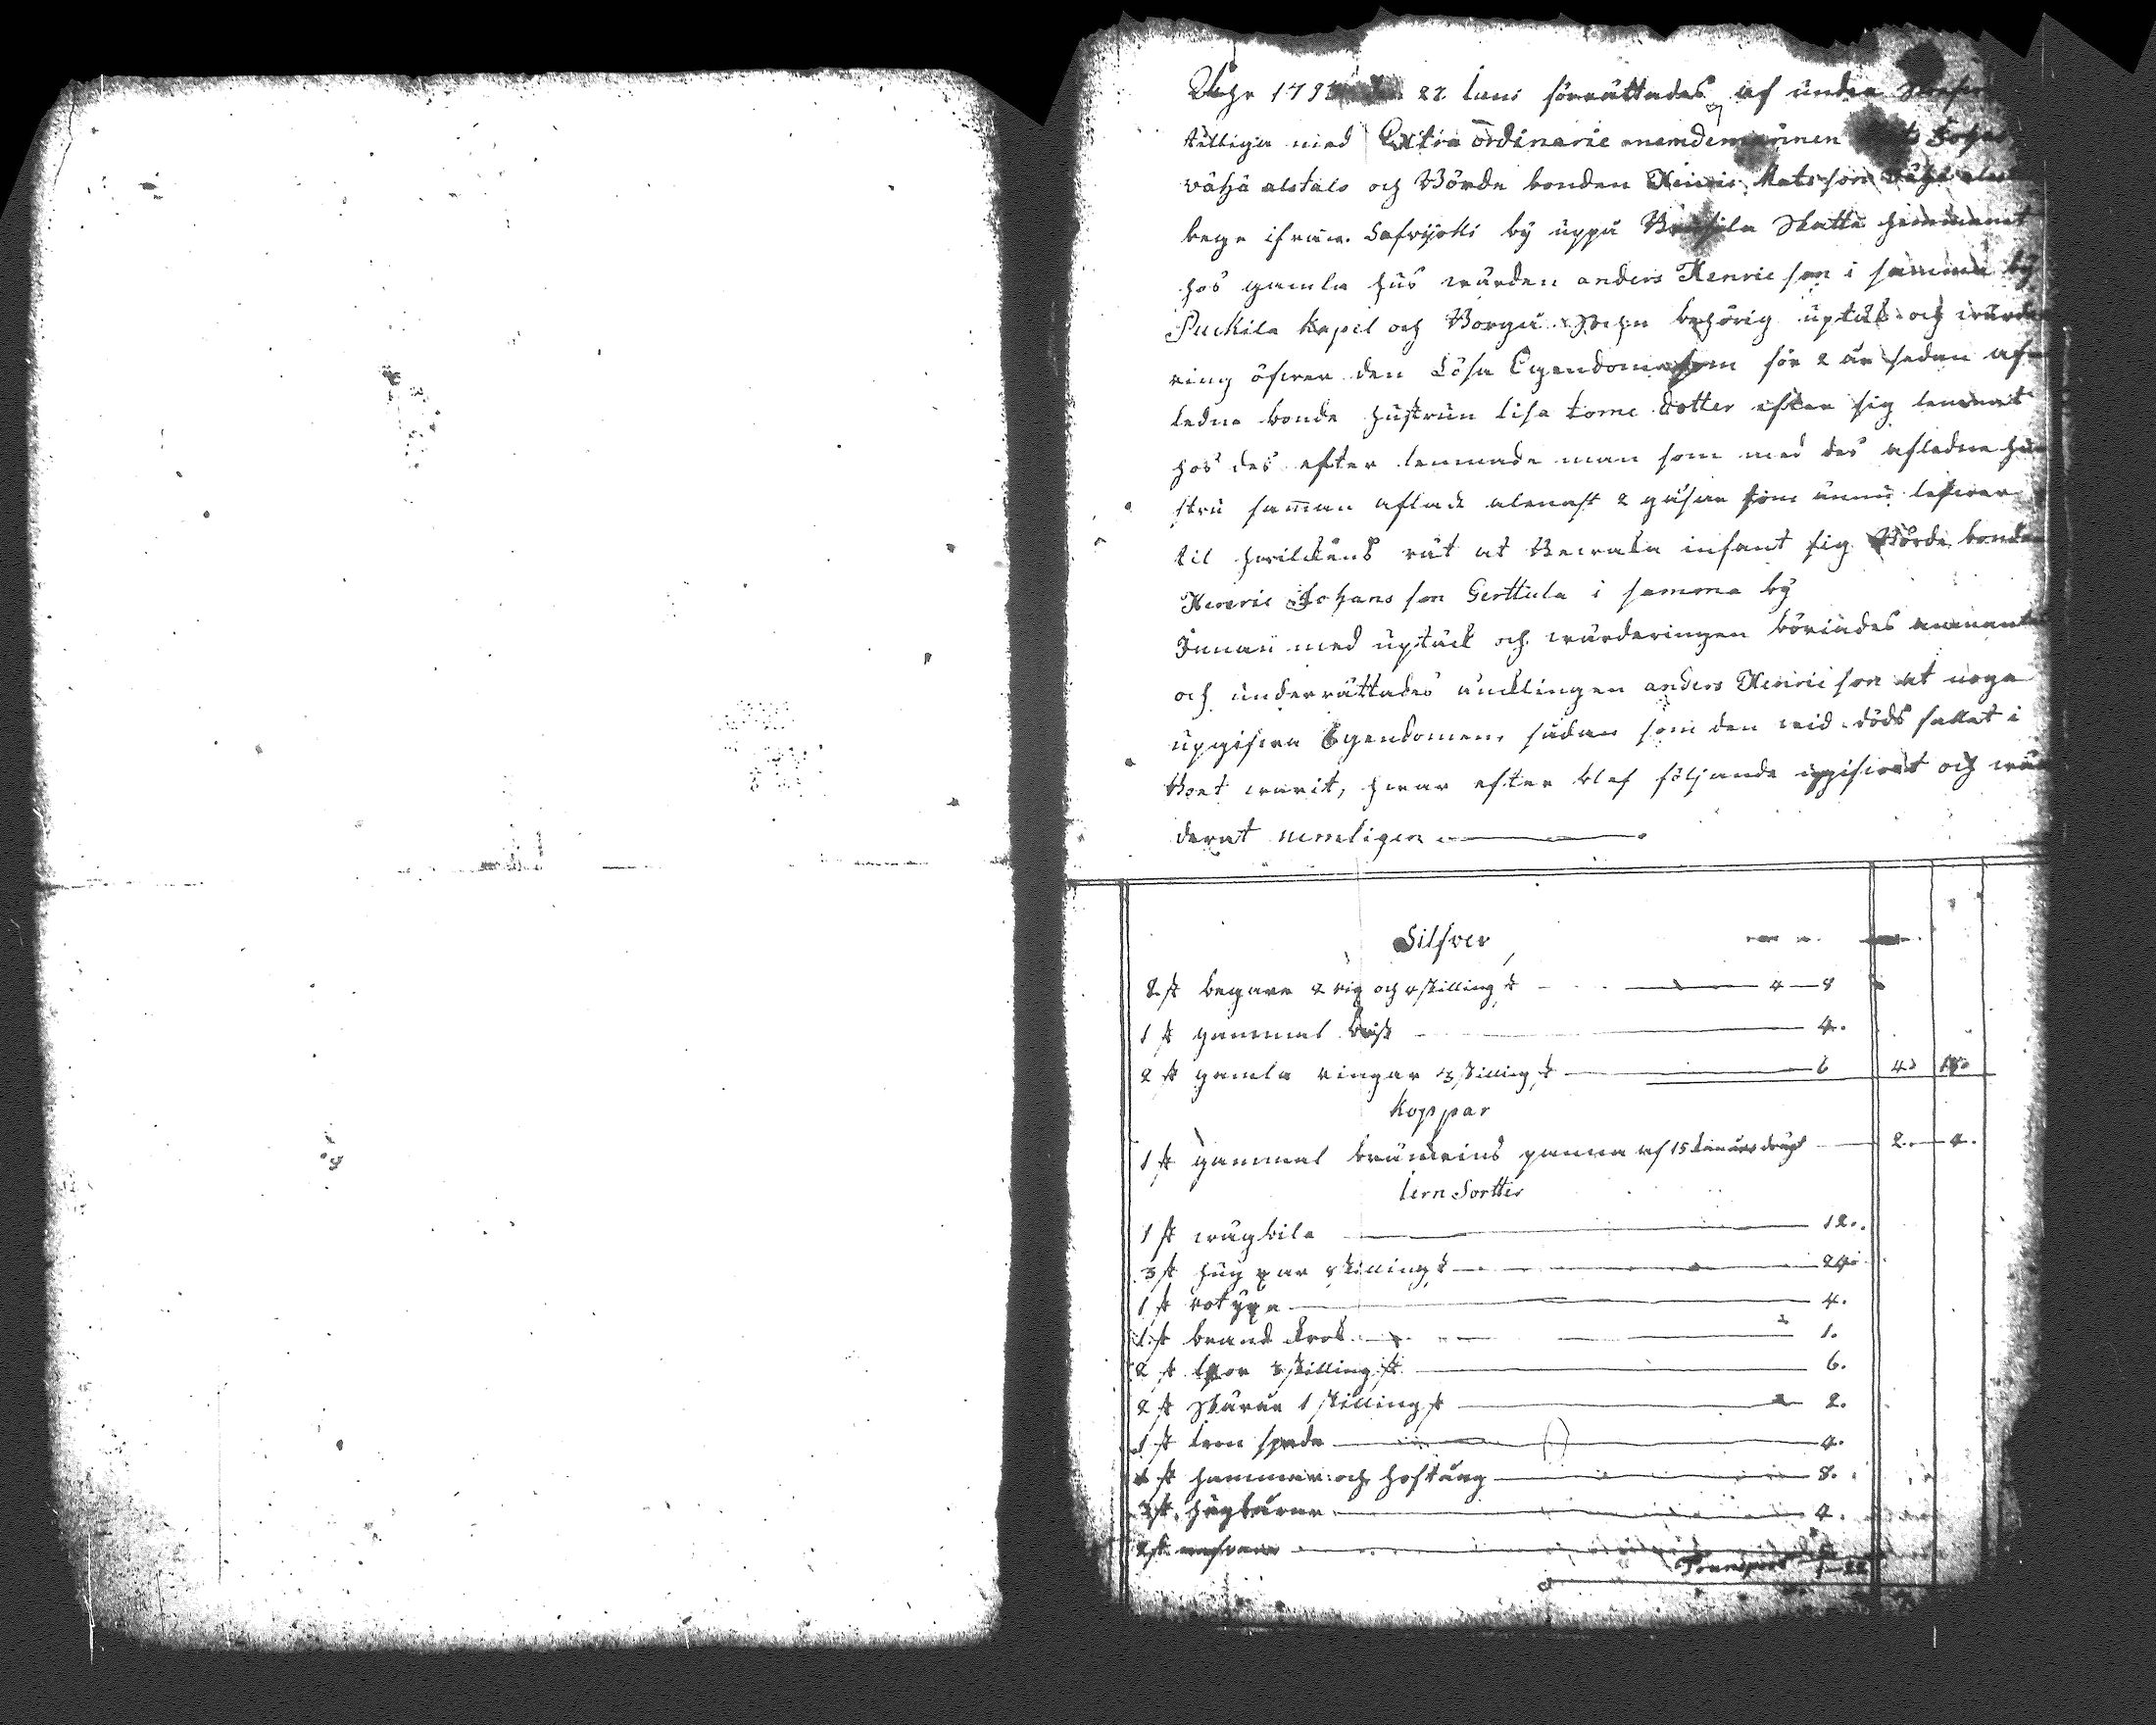 Åhr 179 22 Iuni förrättades af under
tilliga med Extra ordinarie nemdemännen
vähä alstalo och Börde bonden Henric Matsson
bege ifrån Safvijoki by uppå Skatte hemmanet
hos gamla hus wärden anders Henricson i samma by
Puckila kapel och Borgå Sochn behörig uptäk och wärde
ring öfwer den Lösa Egendom som för 2 år sedan af
ledne bonde hustrun lisa tome dotter efter sig lemnat
hos des efter lemnade man som med des afledne hu
stru samman aflade alenast 2 gåsar som ännu lefwer
til hwilckens rät at Bewaka infant sig Börde bonden
Henric Johansson Gerttula i samma by
Innan med uptäck och wärderingen börjades
och underrättades äncklingen anders Henricson at noga
upgifwa Egendomen sådan som den wid döds fallet i
Boet warit, hwar efter blef följande upgifwet och wär
derat nemligen
Silfver
2 st begare 2 rig och 4 skilling st 4 8
1 st gammal 4.
2 st gamla ringar 3 skilling st 6 4
Koppar
1 st gammal bränwins panna af 15 kanårs drägt 2. 4.
Iern Sortter
1 st wägbila 12.
3 st hug yxar 8 skilling st 24
1 st rotyxa 4.
1 st brand krok 1.
2 st lior 3 skilling st 6.
2 st Skäror 1 skilling st 2.
1 st Iern spada 4.
1 st hammar och hoftång 8.
3 st 4.
2 st nafvare
Transport